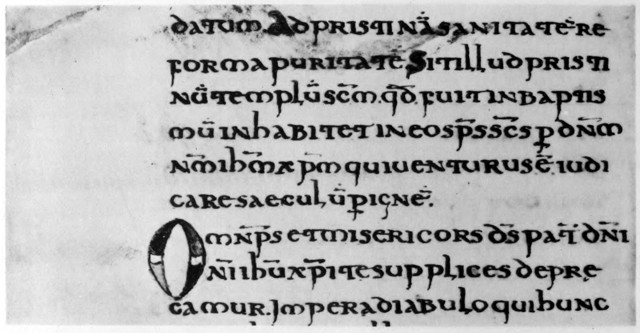 datum. Ad pristinā sanitatē re
forma puritatē. Sit illud pristi
nū templū scm̄. qd̄. fuit in baptis
mū inhabitet in eo sp̄s sc̄s p dn̄m
nm̄ ihm̄ xpm̄ qui venturus ē iudi
care saeculū p igne.
Omnp̄s et misericors ds̄ pat dn̄i
n̄i ihū xp̄i te supplices depre
camur. Impera diabulo qui hunc